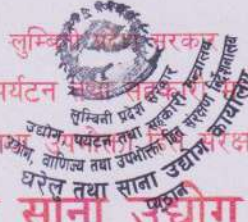 लुम्बिनी प्रदेश सरकार
पर्यटन तथा सहकारी
साना उद्योग
लुम्बिनी प्रदेश सरकार
उद्योग, पर्यटन तथा सहकारी मन्त्रालय
उद्योग, वाणिज्य तथा उपभोक्ता हित संरक्षण निर्देशनालय
घरेलु तथा साना उद्योग कार्यालय
प्यूठान